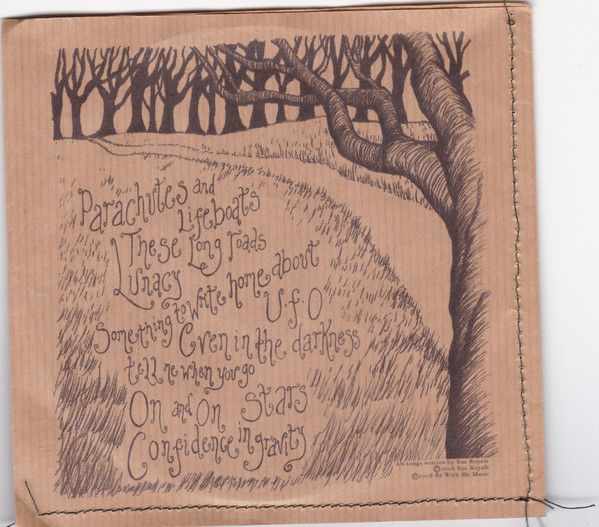 Parachutes and
Lifeboats
These Long roads
Lunacy
Something to write home about
U.f.O
Even in the darkness
tell me when you go
On and On Stars
Confidence in gravity
All songs written by Rue Royale
©2008 Rue Royale
©2008 Be With Me Music